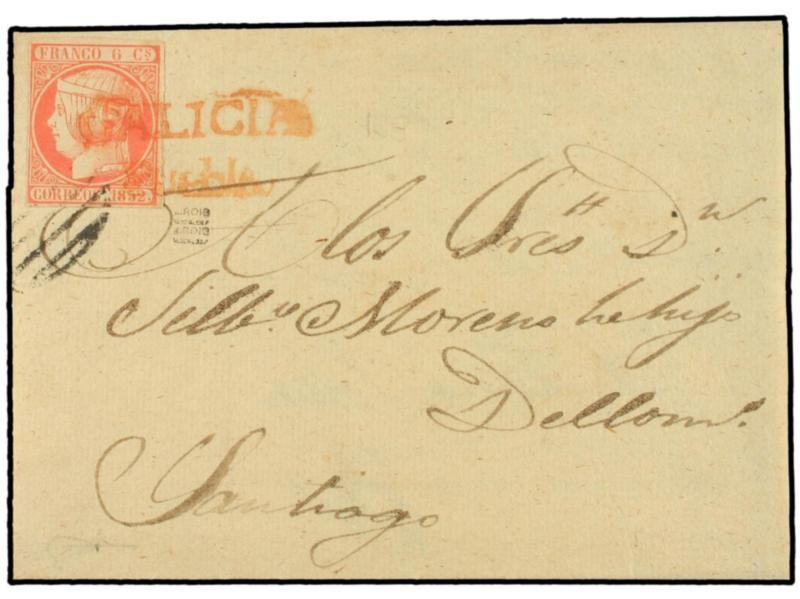 FRANCO 6 Cs
GALICIA
CORREOS 1852.
ROIG
A los Sres Dn
Silbo Moreno he hijo
Dellom.
Santiago